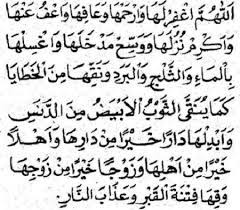 اَللّٰهُمَّ اغْفِرْلَهَا وَارْحَمْهَا وَعَافِهَا وَاعْفُ عَنْهَا
وَاَكْرِمْ نُزُلَهَا وَوَسِّعْ مَدْخَلَهَا وَاغْسِلْهَا
بِالْمَاءِ وَالثَّلْجِ وَالْبَرَدِ وَنَقِّهَا مِنَ الْخَطَايَا
كَمَا يُنَقَّى الثَّوْبُ الْاَبْيَضُ مِنَ الدَّنَسِ
وَاَبْدِلْهَا دَارًا خَيْرًا مِنْ دَارِهَا وَاَهْلًا
خَيْرًا مِنْ اَهْلِهَا وَزَوْجًا خَيْرًا مِنْ زَوْجِهَا
وَقِهَا فِتْنَةَ الْقَبْرِ وَعَذَابَ النَّارِ.